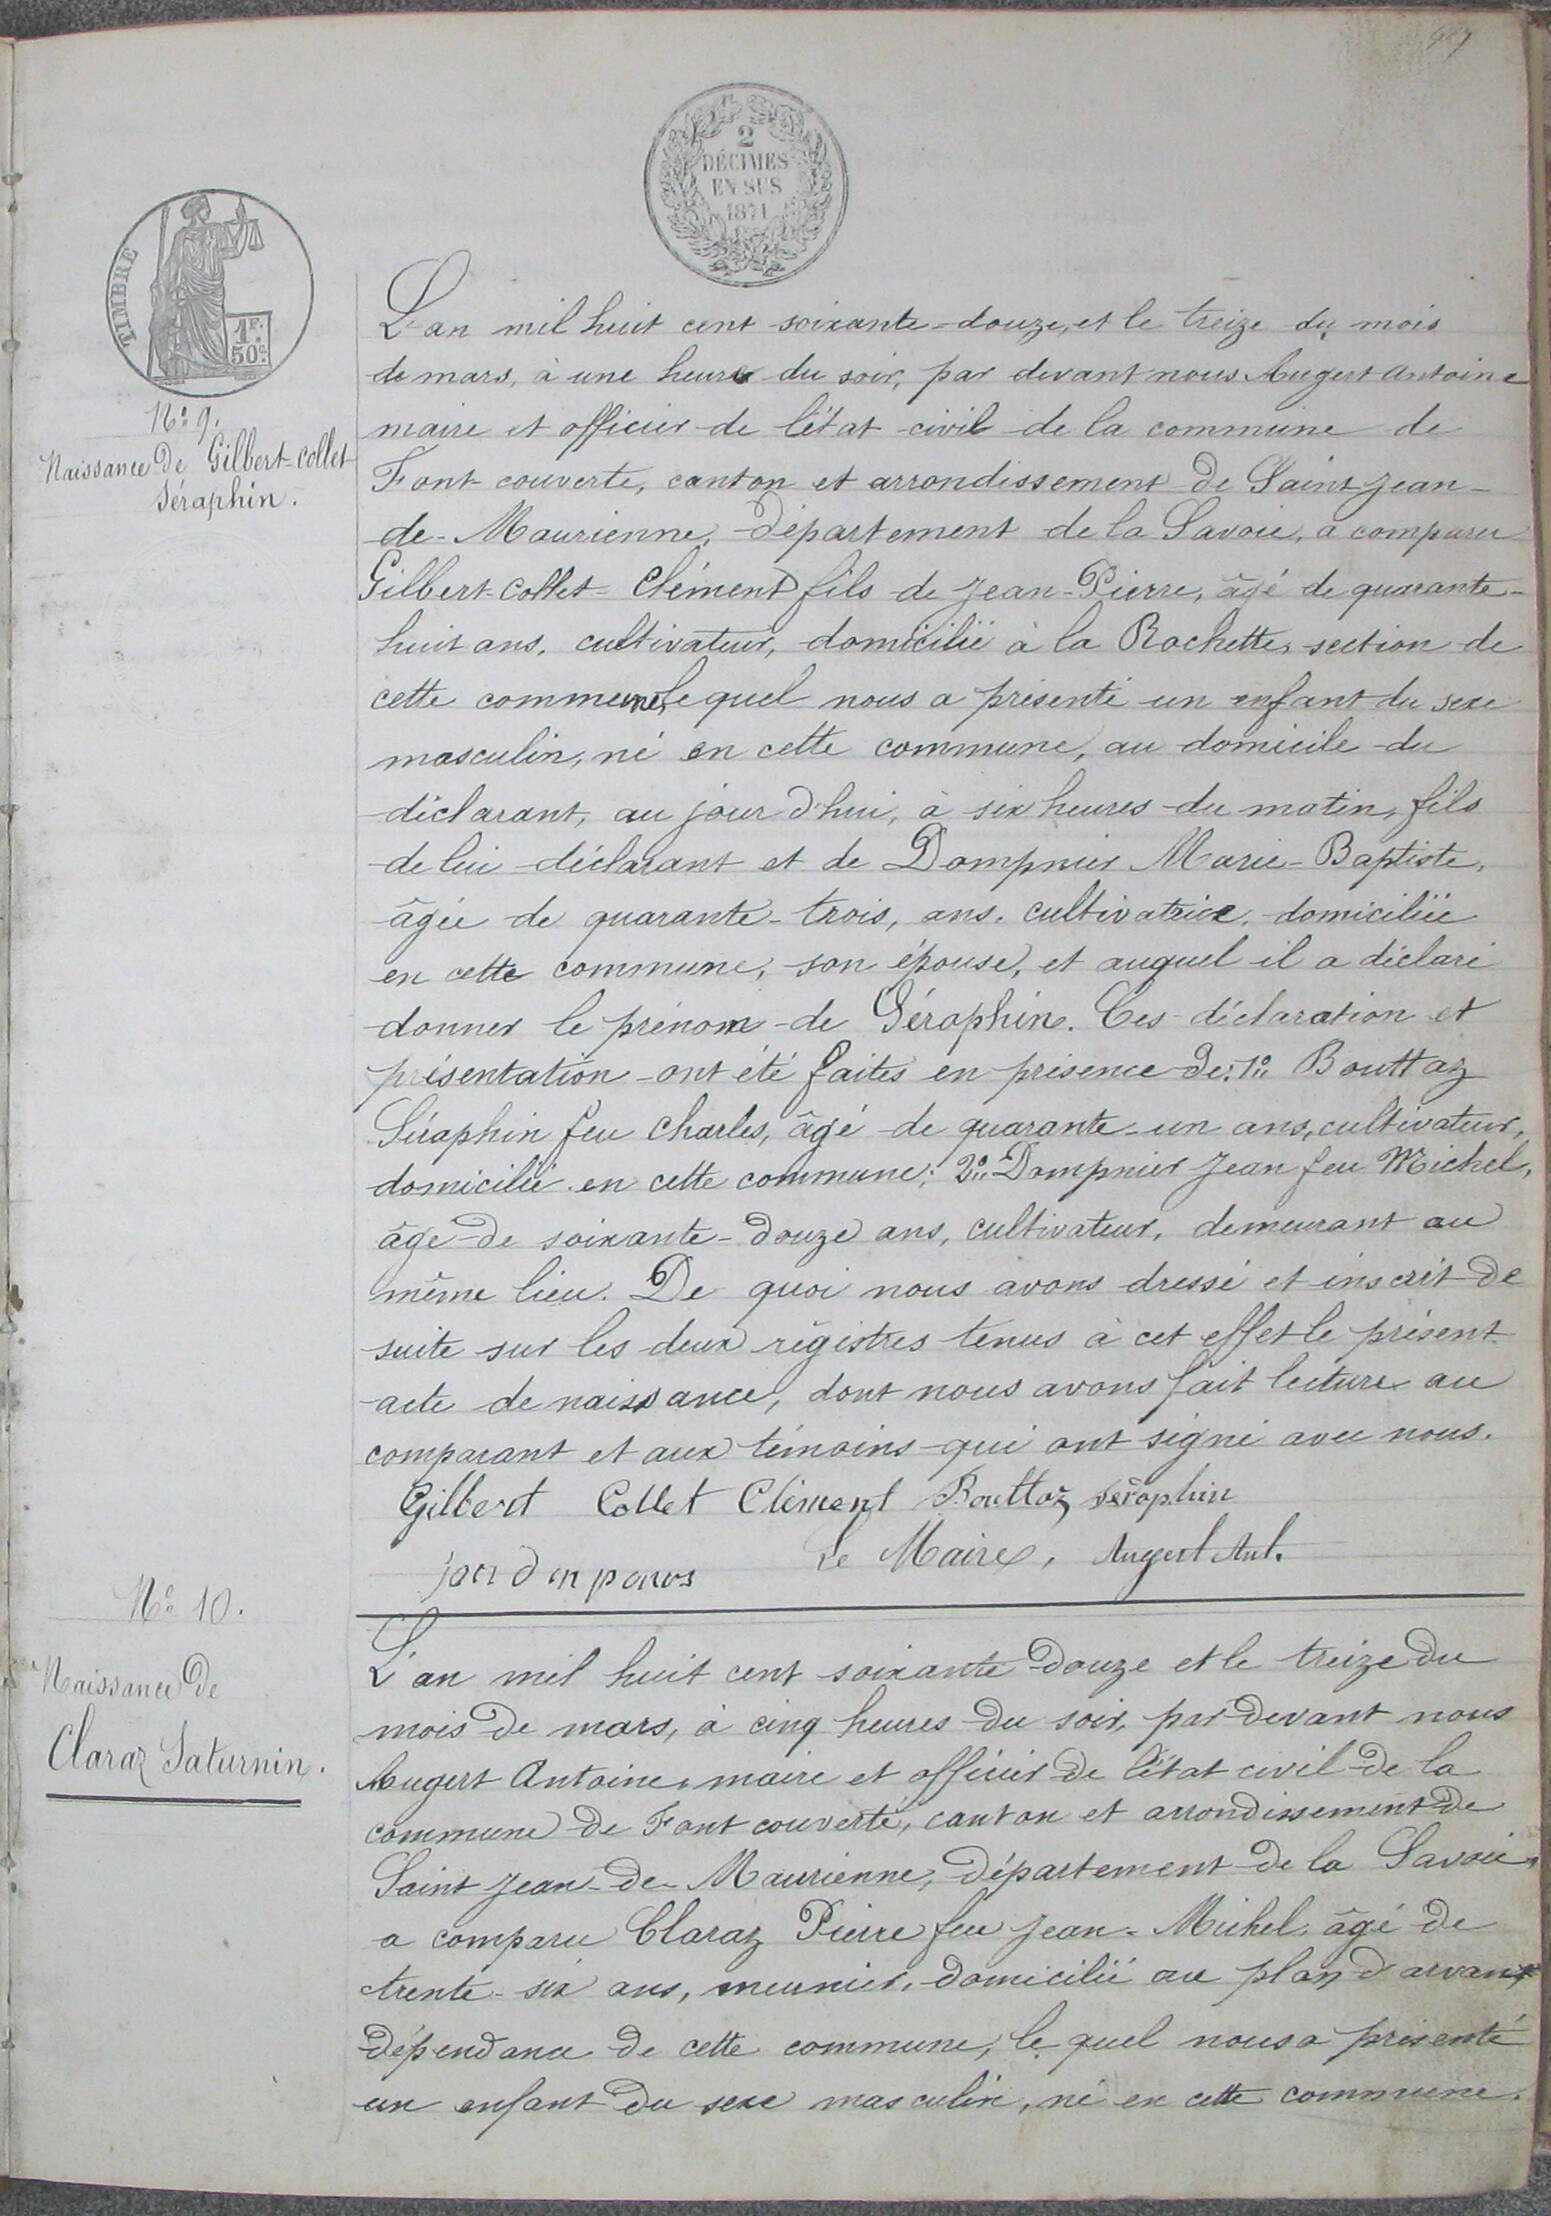 2
DÉCIMES
EN SUS
1871
TIMBRE
1F.
50c.
N°. 9.
Naissance de Gilbert-Collet
Séraphin.
L'an mil huit cent soixante-douze, et le treize du mois
de mars, à une heure du soir, par devant nous Augert Antoine
maire et officier de l'état civil de la commune de
Font-couverte, canton et arrondissement de Saint Jean-
de-Maurienne, département de la Savoie, a comparu
Gilbert-Collet-Clément fils de Jean-Pierre, âgé de quarante-
huit ans, cultivateur, domicilié à la Rochette, section de
cette commune, lequel nous a présenté un enfant du sexe
masculin, né en cette commune, au domicile du
déclarant, au jour d'hui, à six heures du matin, fils
de lui déclarant et de Dompnier Marie-Baptiste,
âgée de quarante-trois, ans, cultivatrice, domiciliée
en cette commune, son épouse, et auquel il a déclaré
donner le prénom de Séraphin. Ces déclaration et
présentation ont été faites en présence de: 1° Bouttaz
Séraphin feu Charles, âgé de quarante-un ans, cultivateur,
domicilié en cette commune; 2° Dompnier Jean feu Michel,
âgé de soixante-douze ans, cultivateur, demeurant au
même lieu. De quoi nous avons dressé et inscrit de
suite sur les deux régistres tenus à cet effet le présent
acte de naissance, dont nous avons fait lecture au
comparant et aux témoins qui ont signé avec nous.
Gilbert Collet Clément Bouttaz séraphin
Le Maire, Augert Ant.
N°. 10.
Naissance de
Claraz Saturnin.
L'an mil huit cent soixante douze et le treize du
mois de mars, à cinq heures du soir, par devant nous
Augert Antoine, maire et officier de l'état civil de la
commune de Font couverte, canton et arrondissement de
Saint Jean-de-Maurienne, département de la Savoie,
a comparu Claraz Pierre feu Jean-Michel, âgé de
trente-six ans, meunier, domicilié au plan d'arvan
dépendance de cette commune, le quel nous a présenté
un enfant du sexe masculin, né en cette commune.